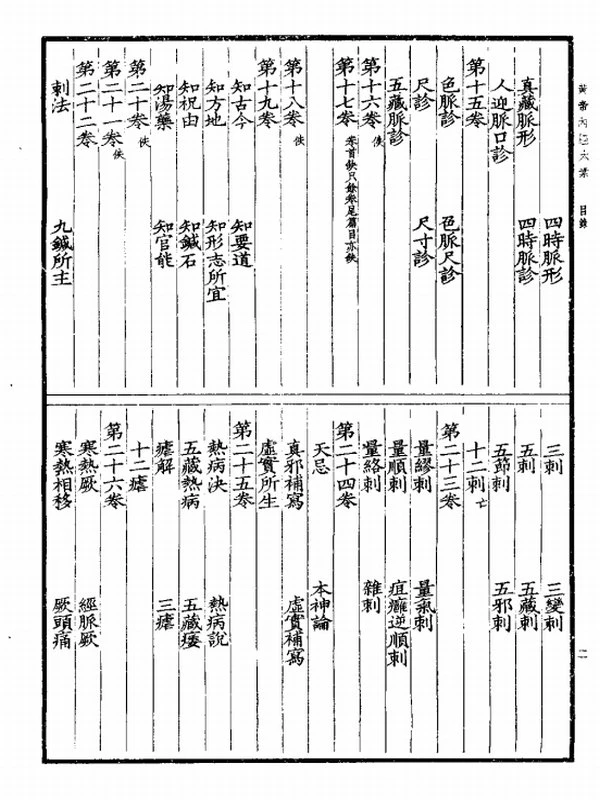 黃帝內經太素 目錄
四時脈形
真藏脈形 四時脈診
人迎脈口診
第十五卷
色脈診 色脈尺診
尺診 尺寸診
五藏脈診
第十六卷 佚
第十七卷 卷首缺只餘卷尾篇目亦缺
第十八卷 佚
第十九卷
知古今 知要道
知方地 知形志所宜
知祝由 知鍼石
知湯藥 知官能
第二十卷 佚
第二十一卷 佚
第二十二卷
刺法 九鍼所主
二
三刺 三變刺
五刺 五藏刺
五節刺 五邪刺
十二刺 亡
第二十三卷
量繆刺 量氣刺
量順刺 疽癰逆順刺
量絡刺 雜刺
第二十四卷
天忌 本神論
真邪補寫 虛實補寫
虛實所生
第二十五卷
熱病決 熱病說
五藏熱病 五藏痿
瘧解 三瘧
十二瘧
第二十六卷
寒熱厥 經脈厥
寒熱相移 厥頭痛